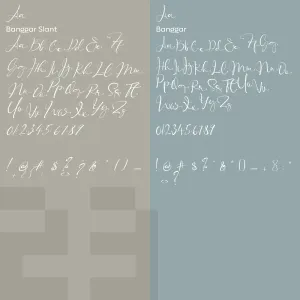 Aa
Banggar Slant
Aa Bb Cc Dd Ee Ff
Gg Hh Ii Jj Kk Ll Mm
Nn Oo Pp Qq Rr Ss Tt
Uu Vv Ww Xx Yy Zz
Aa
Banggar
Aa Bb Cc Dd Ee Ff Gg
Hh Ii Jj Kk Ll Mm Nn Oo
Pp Qq Rr Ss Tt Uu Vv
Ww Xx Yy Zz